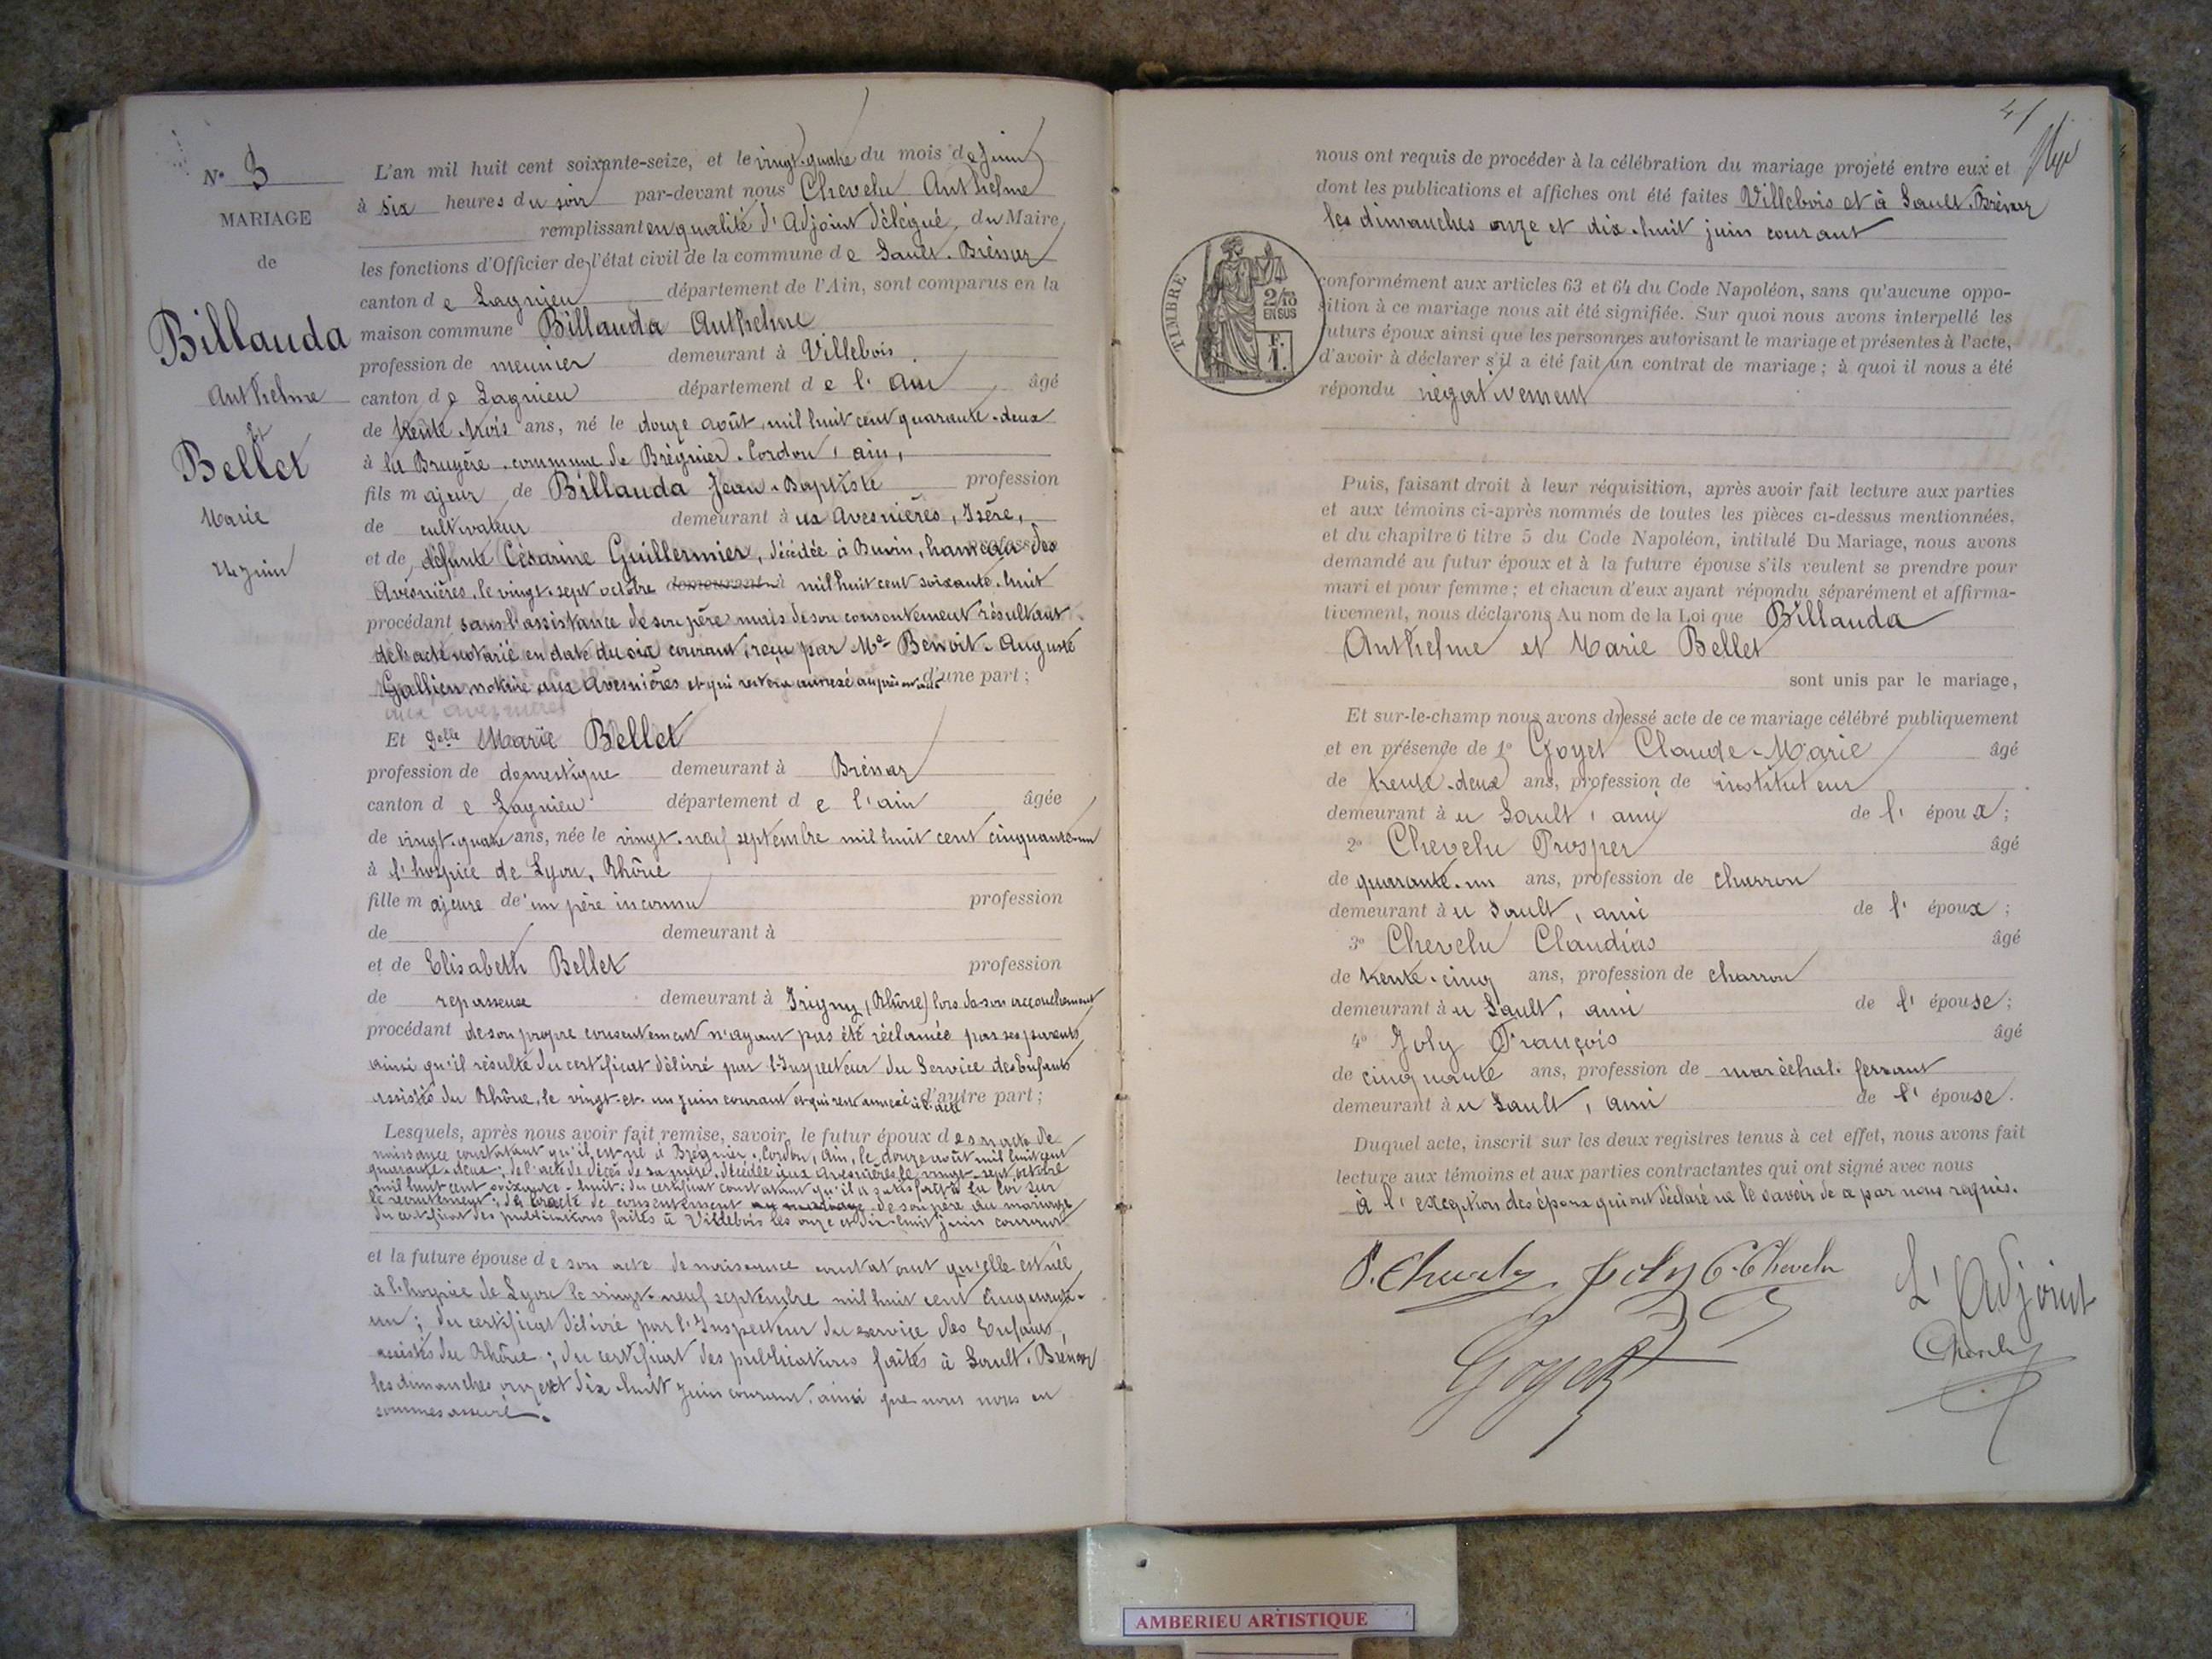 N° 3
MARIAGE
de
Billauda
Anthelme
et
Bellet
Marie
24 Juin
L'an mil huit cent soixante-seize, et le vingt-quatre du mois de Juin
à six heures du soir par-devant nous Chevelu Anthelme
remplissant en qualité d'Adjoint délégué, du Maire,
les fonctions d'Officier de l'état civil de la commune de Sault-Brénaz
canton de Lagnieu département de l'Ain, sont comparus en la
maison commune Billauda Anthelme
profession de meunier demeurant à Villebois
canton de Lagnieu département de l'Ain âgé
de trente-trois ans, né le douze août, mil huit cent quarante-deux
à la Bruyère, commune de Brégnier-Cordon, ain,
fils majeur de Billauda Jean-Baptiste profession
de cultivateur demeurant à ux Avesnières, Isère,
et de défunte Césarine Guillermier, décédée à Buvin, hameau des profession
Avesnières, le vingt-sept octobre demeurant à mil huit cent soixante-huit
procédant sans l'assistance de son père mais de son consentement résultant
de l'acte notarié en date du six courant, reçu par Me Benoit-Auguste
Gallien notaire aux Avesnières et qui restera annexé d'une part;
aux avesnières
Et Delle Marie Bellet
profession de domestique demeurant à Brénaz
canton de Lagnieu département de l'ain âgée
de vingt-quatre ans, née le vingt-neuf septembre mil huit cent cinquante-un
à l'hospice de Lyon, Rhône
fille majeure de un père inconnu profession
de demeurant à
et de Elisabeth Bellet profession
de repasseuse demeurant à Irigny (Rhône) lors de son accouchement
procédant de son propre consentement n'ayant pas été réclamée par ses parents
ainsi qu'il résulte du certificat délivré par l'Inspecteur du Service des Enfants
assistés du Rhône, le vingt-et-un juin courant et qui reste annexé à l'acte d'autre part;
Lesquels, après nous avoir fait remise, savoir, le futur époux de son acte de
naissance constatant qu'il est né à Brégnier-Cordon, Ain, le douze août mil huit cent
quarante-deux; de l'acte de décès de sa mère, décédée aux Avesnières le vingt-sept octobre
mil huit cent soixante-huit; du certificat constatant qu'il a satisfait à la loi sur
le recrutement; de l'acte de consentement au mariage de son père au mariage
du certificat des publications faites à Villebois les onze et dix-huit juin courant
et la future épouse de son acte de naissance constatant qu'elle est née
à l'hospice de Lyon le vingt-neuf septembre mil huit cent cinquante-
un; du certificat délivré par l'Inspecteur du service des Enfants
assistés du Rhône; du certificat des publications faites à Sault-Brénaz
les dimanches onze et dix-huit juin courant, ainsi que nous nous en
sommes assuré.
41
nous ont requis de procéder à la célébration du mariage projeté entre eux et
dont les publications et affiches ont été faites Villebois et à Sault-Brénaz
les dimanches onze et dix-huit juin courant
TIMBRE
2/10
EN SUS
F.
1.
conformément aux articles 63 et 64 du Code Napoléon, sans qu'aucune oppo-
sition à ce mariage nous ait été signifiée. Sur quoi nous avons interpellé les
futurs époux ainsi que les personnes autorisant le mariage et présentes à l'acte,
d'avoir à déclarer s'il a été fait un contrat de mariage; à quoi il nous a été
répondu négativement
Puis, faisant droit à leur réquisition, après avoir fait lecture aux parties
et aux témoins ci-après nommés de toutes les pièces ci-dessus mentionnées,
et du chapitre 6 titre 5 du Code Napoléon, intitulé Du Mariage, nous avons
demandé au futur époux et à la future épouse s'ils veulent se prendre pour
mari et pour femme; et chacun d'eux ayant répondu séparément et affirma-
tivement, nous déclarons Au nom de la Loi que Billauda
Anthelme et Marie Bellet
sont unis par le mariage,
Et sur-le-champ nous avons dressé acte de ce mariage célébré publiquement
et en présence de 1° Goyet Claude-Marie âgé
de trente-deux ans, profession de instituteur
demeurant à u Sault, ami de l'époux;
2° Chevelu Prosper âgé
de quarante-un ans, profession de charron
demeurant à u Sault, ami de l'époux;
3° Chevelu Claudias âgé
de trente-cinq ans, profession de charron
demeurant à u Sault, ami de l'épouse;
4° Joly François âgé
de cinquante ans, profession de maréchal-ferrant
demeurant à u Sault, ami de l'épouse.
Duquel acte, inscrit sur les deux registres tenus à cet effet, nous avons fait
lecture aux témoins et aux parties contractantes qui ont signé avec nous
à l'exception des époux qui ont déclaré ne le savoir de ce par nous requis.
P. Chevelu Joly C. Chevelu
L'Adjoint
Chevelu
Goyet
AMBERIEU ARTISTIQUE